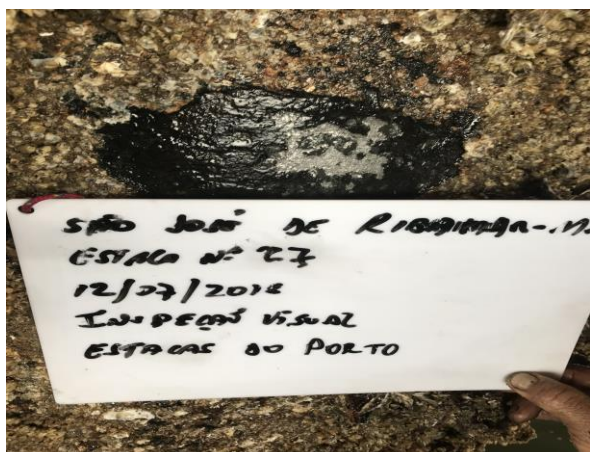 SÃO JOSÉ DE RIBAMAR-M
ESTACA Nº 27
12/07/2018
INSPEÇÃO VISUAL
ESTACAS DO PORTO